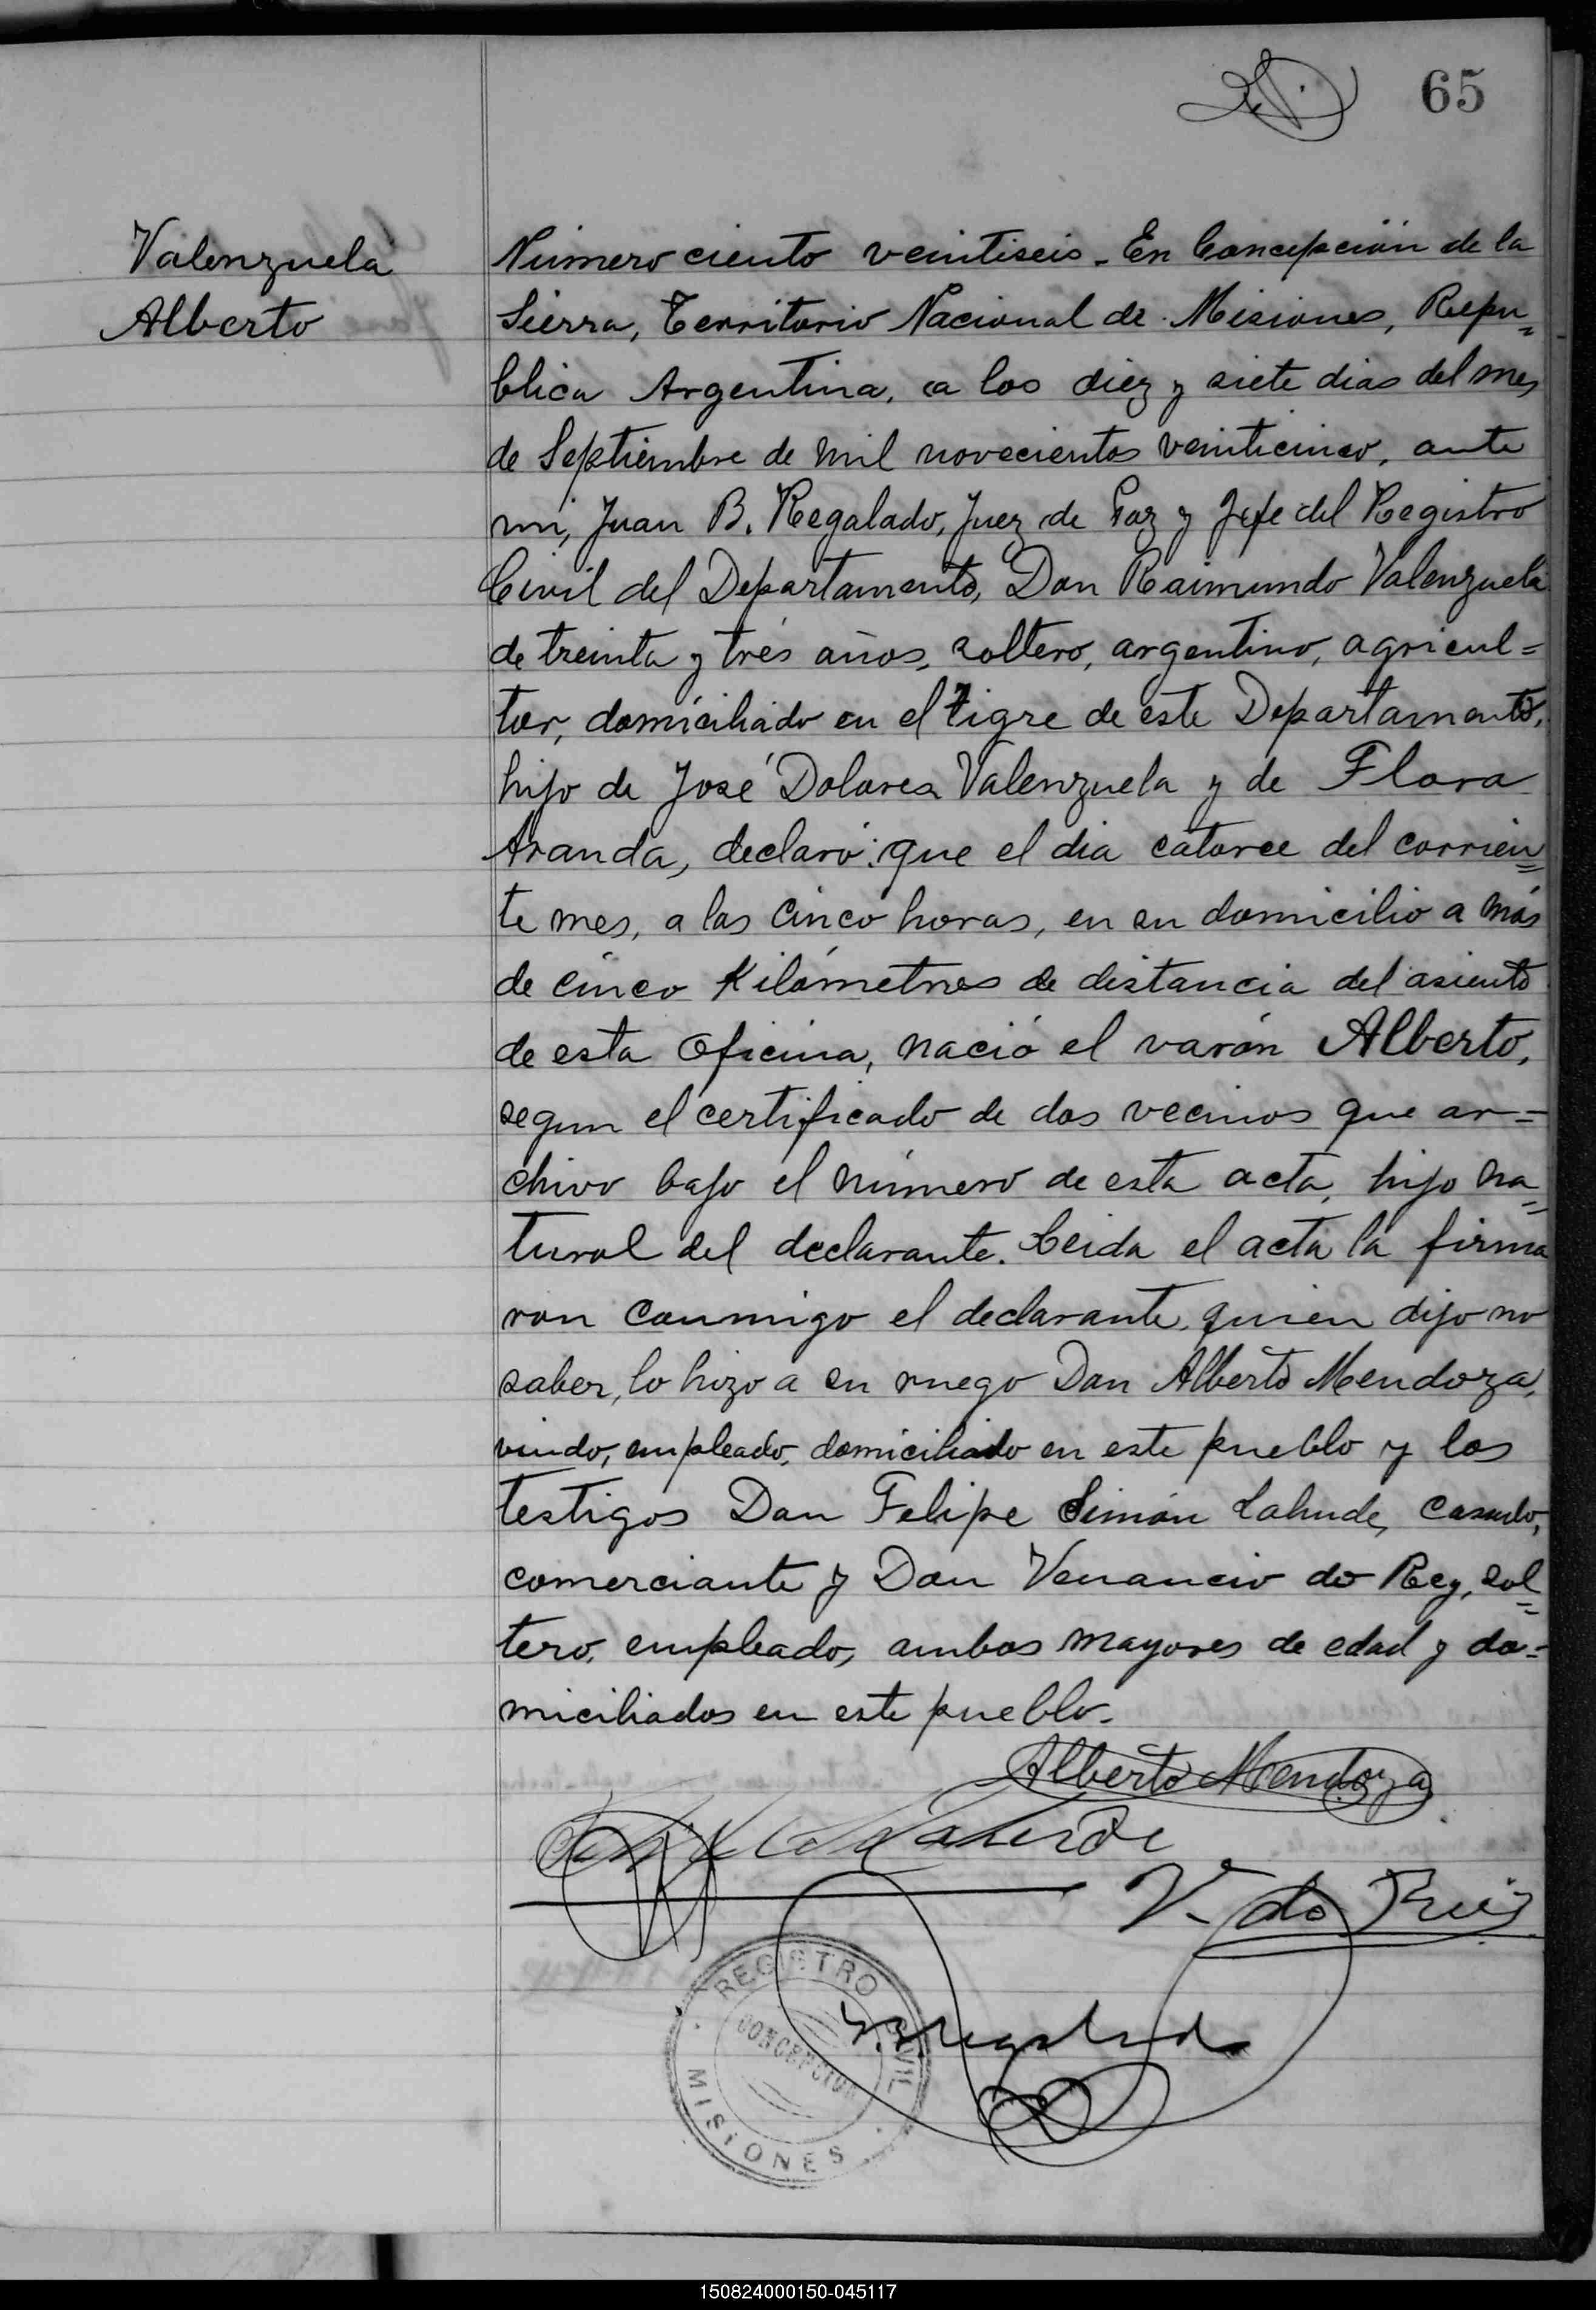 65
Valenzuela
Alberto
Número ciento veintiseis. En Concepción de la
Sierra, Territorio Nacional de Misiones, Repu=
blica Argentina, a los diez y siete dias del mes
de Septiembre de mil novecientos veinticinco, ante
mi, Juan B. Regalado, Juez de Paz y Jefe del Registro
Civil del Departamento, Don Raimundo Valenzuela
de treinta y tres años, soltero, argentino, agricul=
tor, domiciliado en el Tigre de este Departamento,
hijo de José Dolores Valenzuela y de Flora
Aranda, declaró: que el dia catorce del corrien=
te mes, a las cinco horas, en su domicilio a más
de cinco Kilómetros de distancia del asiento
de esta Oficina, nació el varón Alberto,
segun el certificado de dos vecinos que ar=
chivo bajo el número de esta acta, hijo na=
tural del declarante. Leida el acta la firma
ron conmigo el declarante, quien dijo no
saber, lo hizo a su ruego Don Alberto Mendoza,
viudo, empleado, domiciliado en este pueblo y los
testigos Don Felipe Simón Lahude, casado,
comerciante y Don Venancio do Rey, sol=
tero, empleado, ambos mayores de edad y do=
miciliados en este pueblo.
Alberto Mendoza
V. do Rey
REGISTRO CIVIL
CONCEPCION
MISIONES
150824000150-045117